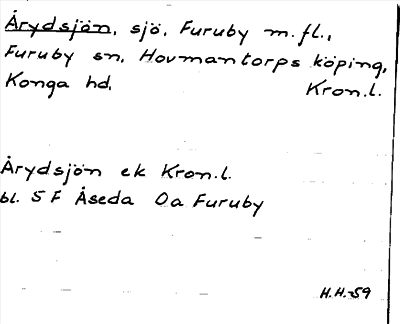 Årydsjön, sjö, Furuby m.fl.,
Furuby sn, Hovmantorps köping,
Konga hd. Kron.l.
Årydsjön ek Kron.l.
bl. 5 F Åseda 0a Furuby
H.H.-59